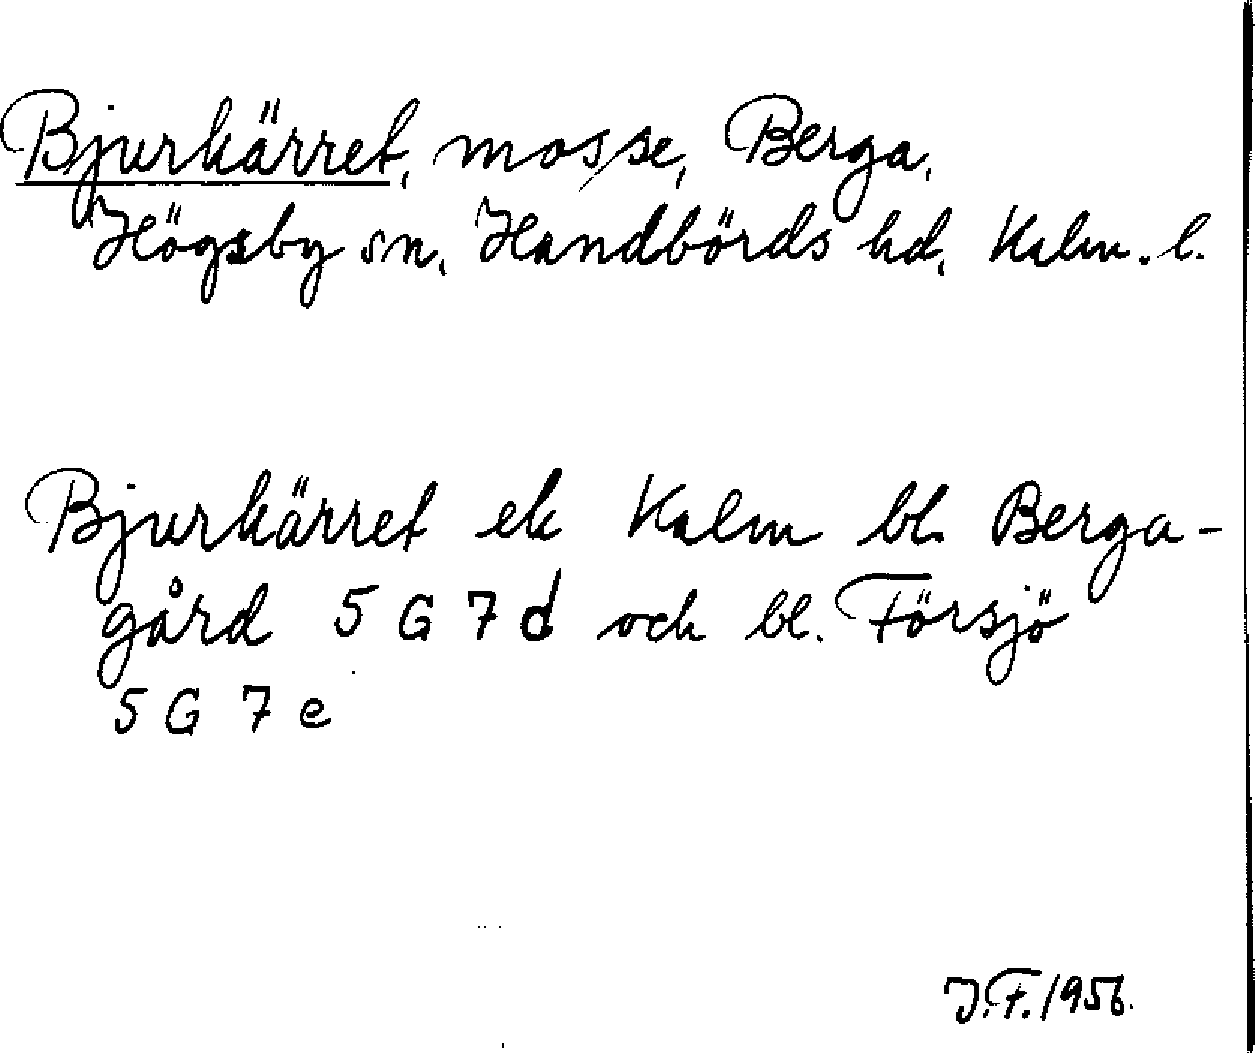 Bjurkärret, mosse, Berga,
Högsby sn, Handbörds hd, Kalm. l.
Bjurkärret ek Kalm bl. Berga-
gård 5 G 7 d och bl. Försjö
5 G 7 e
J.F. 1956.